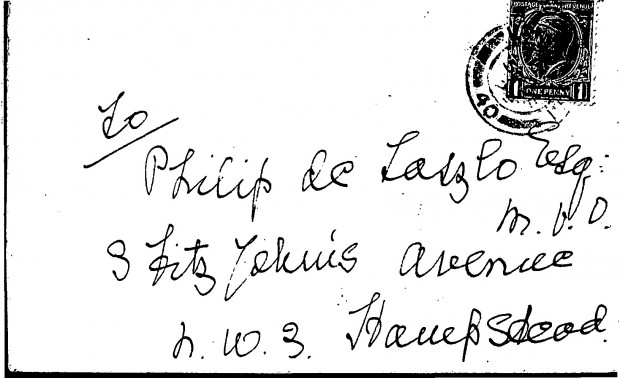 POSTAGE REVENUE
1 ONE PENNY 1
40
To
Philip de Laszlo Esq:
M.V.O.
3 Fitz John's Avenue
N.W.3. Hampstead.